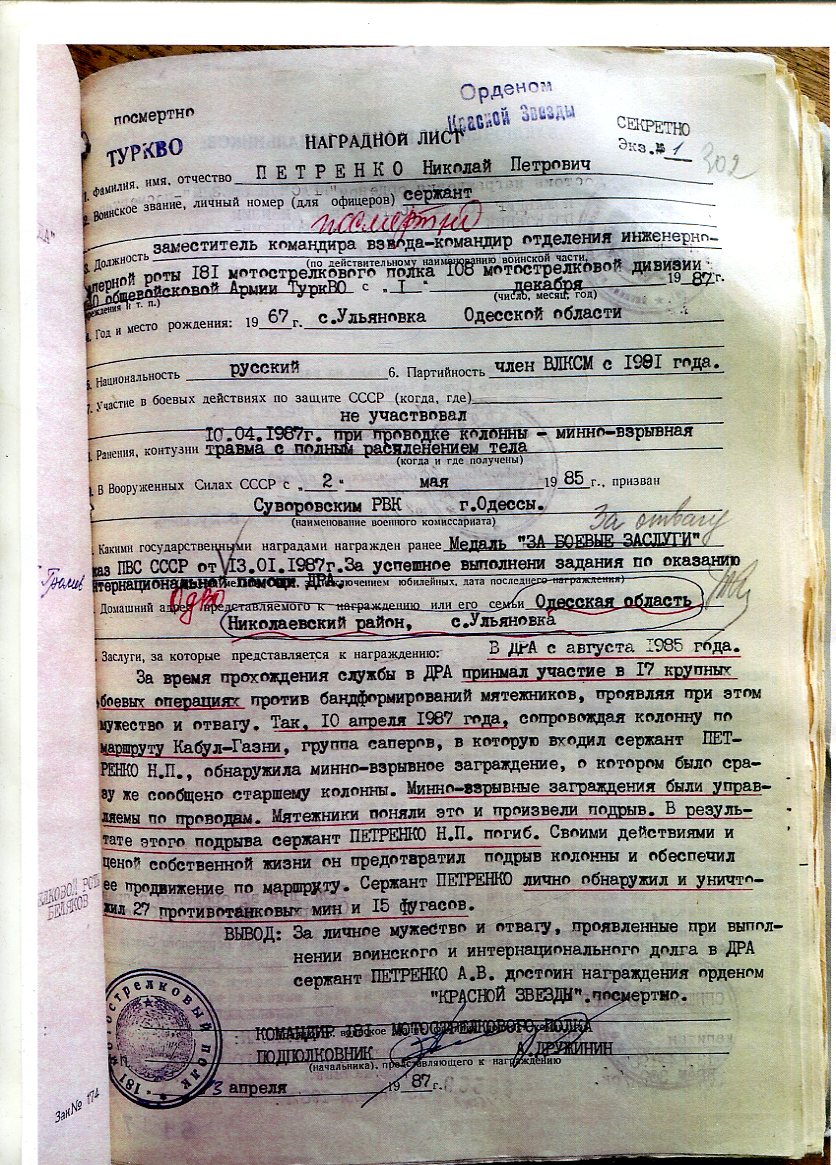 посмертно
Орденом
Красной Звезды
ТУРКВО
НАГРАДНОЙ ЛИСТ
СЕКРЕТНО
Экз.№ 1
302
1. Фамилия, имя, отчество ПЕТРЕНКО Николай Петрович
2. Воинское звание, личный номер (для офицеров) сержант
посмертно
3. Должность заместитель командира взвода-командир отделения инженерно-
(по действительному наименованию воинской части,
перной роты 181 мотострелкового полка 108 мотострелковой дивизии
40 общевойсковой Армии ТуркВО с „ 1 " декабря 1987г.
учреждения и т. п.) (число, месяц, год)
4. Год и место рождения: 1967 г. с.Ульяновка Одесской области
5. Национальность русский 6. Партийность член ВЛКСМ с 1981 года.
7. Участие в боевых действиях по защите СССР (когда, где)
не участвовал
10.04.1987г. при проводке колонны - минно-взрывная
Ранения, контузии травма с полным расчленением тела
(когда и где получены)
В Вооруженных Силах СССР с „ 2 " мая 1985 г., призван
Суворовским РВК г.Одессы.
(наименование военного комиссариата)
За отвагу
Какими государственными наградами награжден ранее Медаль "ЗА БОЕВЫЕ ЗАСЛУГИ"
каз ПВС СССР от 13.01.1987г.За успешное выполнени задания по оказанию
нтернациональной помощи ДРА. включением юбилейных, дата последнего награждения)
Одво
Домашний адрес представляемого к награждению или его семьи Одесская область
Николаевский район, с.Ульяновка
Заслуги, за которые представляется к награждению: В ДРА с августа 1985 года.
За время прохождения службы в ДРА принмал участие в 17 крупных
боевых операциях против бандформирований мятежников, проявляя при этом
мужество и отвагу. Так, 10 апреля 1987 года, сопровождая колонну по
маршруту Кабул-Газни, группа саперов, в которую входил сержант ПЕТ-
РЕНКО Н.П., обнаружила минно-взрывное заграждение, о котором было сра-
зу же сообщено старшему колонны. Минно-взрывные заграждения были управ-
ляемы по проводам. Мятежники поняли это и произвели подрыв. В резуль-
тате этого подрыва сержант ПЕТРЕНКО Н.П. погиб. Своими действиями и
ценой собственной жизни он предотвратил подрыв колонны и обеспечил
ее продвижение по маршруту. Сержант ПЕТРЕНКО лично обнаружил и уничто-
жил 27 противотанковых мин и 15 фугасов.
ЛКОВОЙ РОТЫ
БЕЛЯКОВ
ВЫВОД: За личное мужество и отвагу, проявленные при выпол-
нении воинского и интернационального долга в ДРА
сержант ПЕТРЕНКО А.В. достоин награждения орденом
"КРАСНОЙ ЗВЕЗДЫ".посмертно.
КОМАНДИР 181 МОТОСТРЕЛКОВОГО ПОЛКА
ПОДПОЛКОВНИК А.ДРУЖИНИН
(начальника), представляющего к награждению
3 апреля 1987 г.
181 мотострелковый полк
Зак № 174